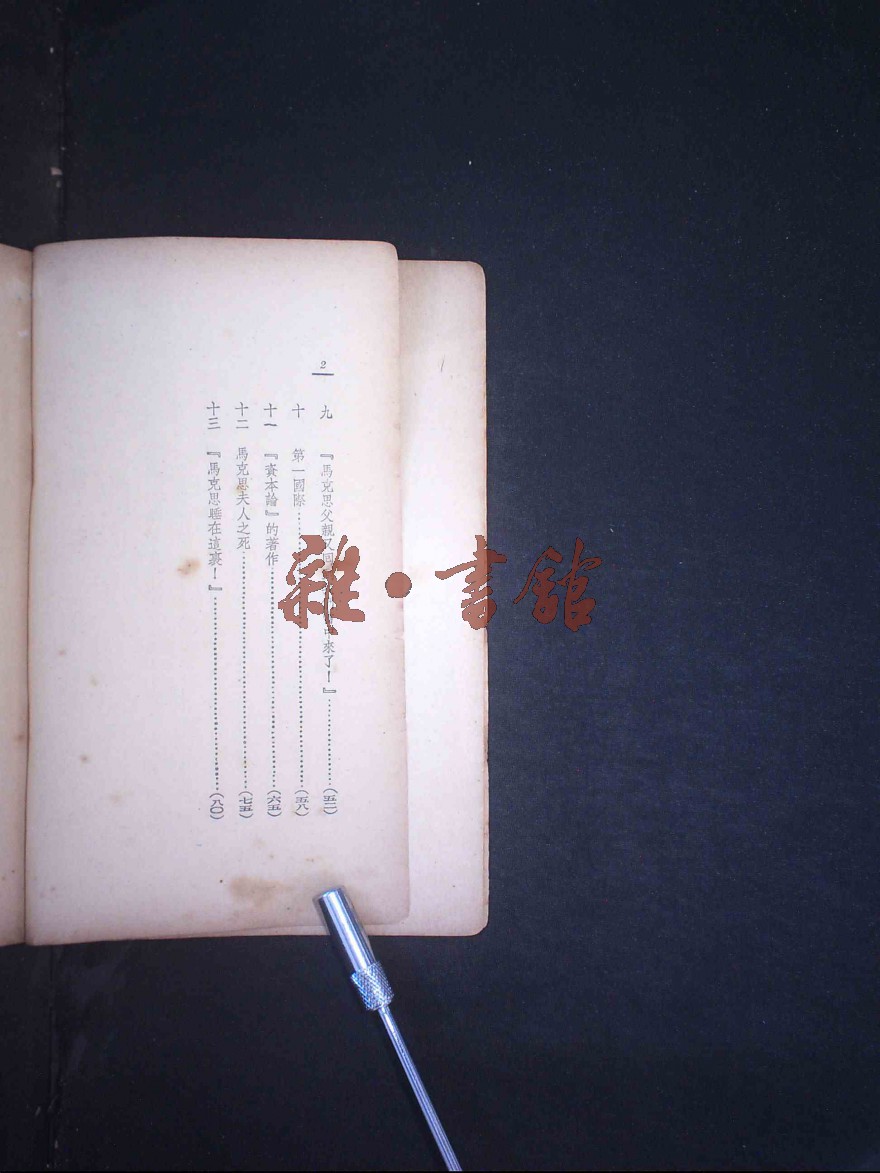 2
九 『馬克思父親又回來了！』……(五二)
十 第一國際……(五八)
十一 『資本論』的著作……(六五)
十二 馬克思夫人之死……(七五)
十三 『馬克思睡在這裏！』……(八〇)
雜·書館